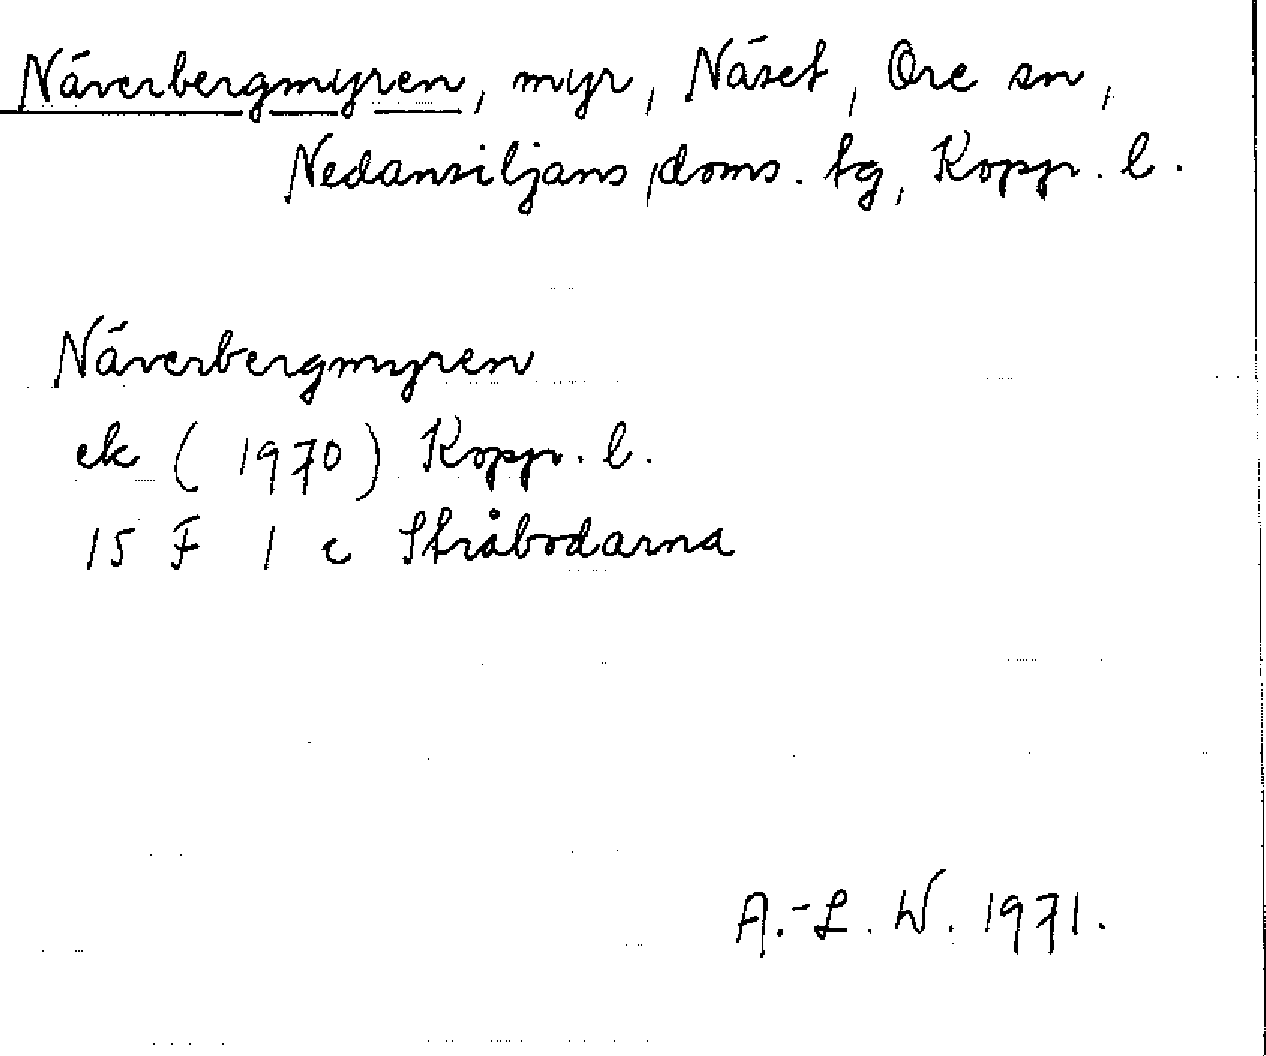 Näverbergmyren, myr, Näset, Ore sn,
Nedansiljans doms. tg, Kopp. l.
Näverbergmyren
ek (1970) Kopp. l.
15 F 1 c Stråbodarna
A.-L. W. 1971.